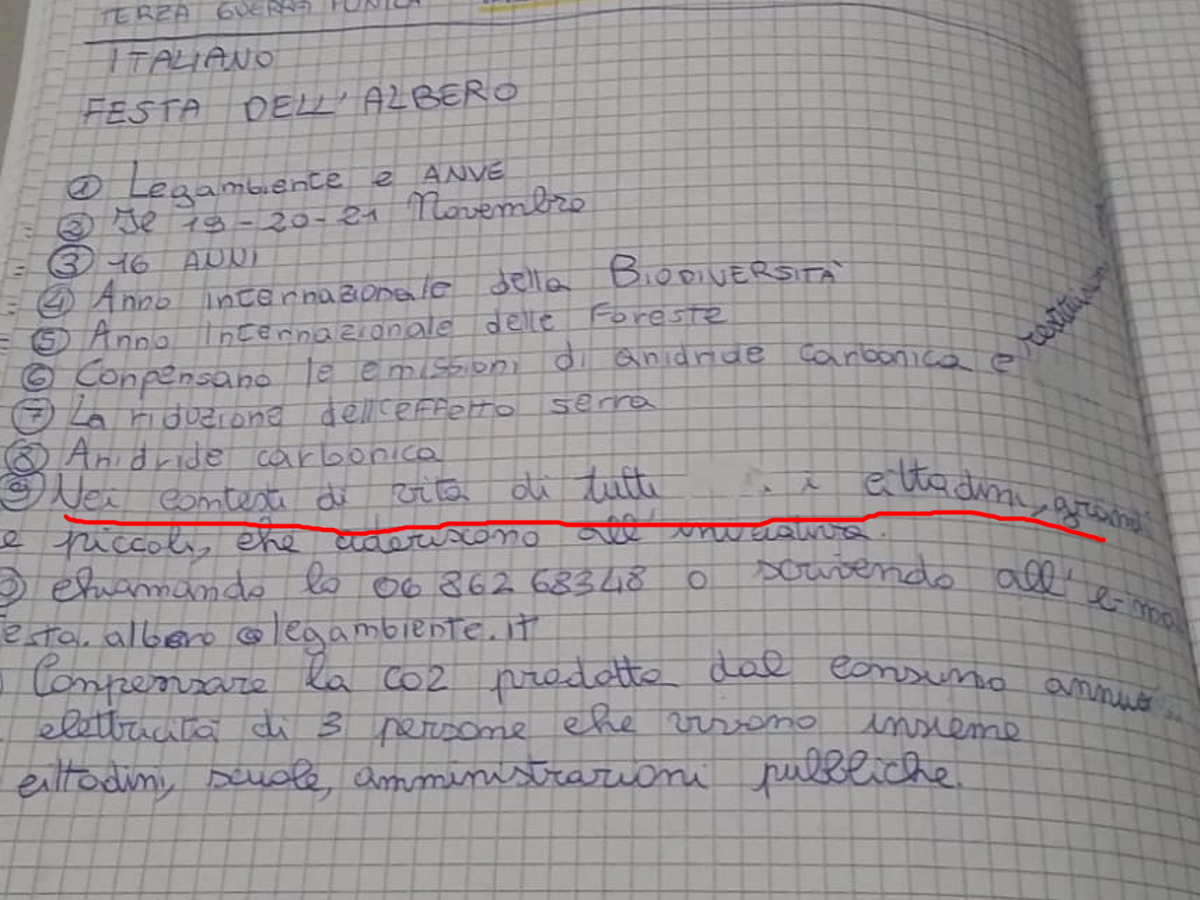 TERZA GUERRA PUNICA
ITALIANO
FESTA DELL'ALBERO
① Legambiente e ANVE
② Il 19-20-21 Novembre
③ 16 ANNI
④ Anno internazionale della BIODIVERSITÀ
⑤ Anno Internazionale delle Foreste
⑥ Conpensano le emissioni di anidride carbonica e
⑦ La riduzione dell'effetto serra
⑧ Anidride carbonica
⑨ Nei contesti di vita di tutti i cittadini, grandi
e piccoli, che aderiscono all'iniziativa.
chiamando lo 06 86268348 o scrivendo all' e-mai
esta.albero@legambiente.it
Compensare la CO2 prodotta dal consumo annuo
elettricità di 3 persone che vivono insieme
cittadini, scuole, amministrazioni pubbliche.